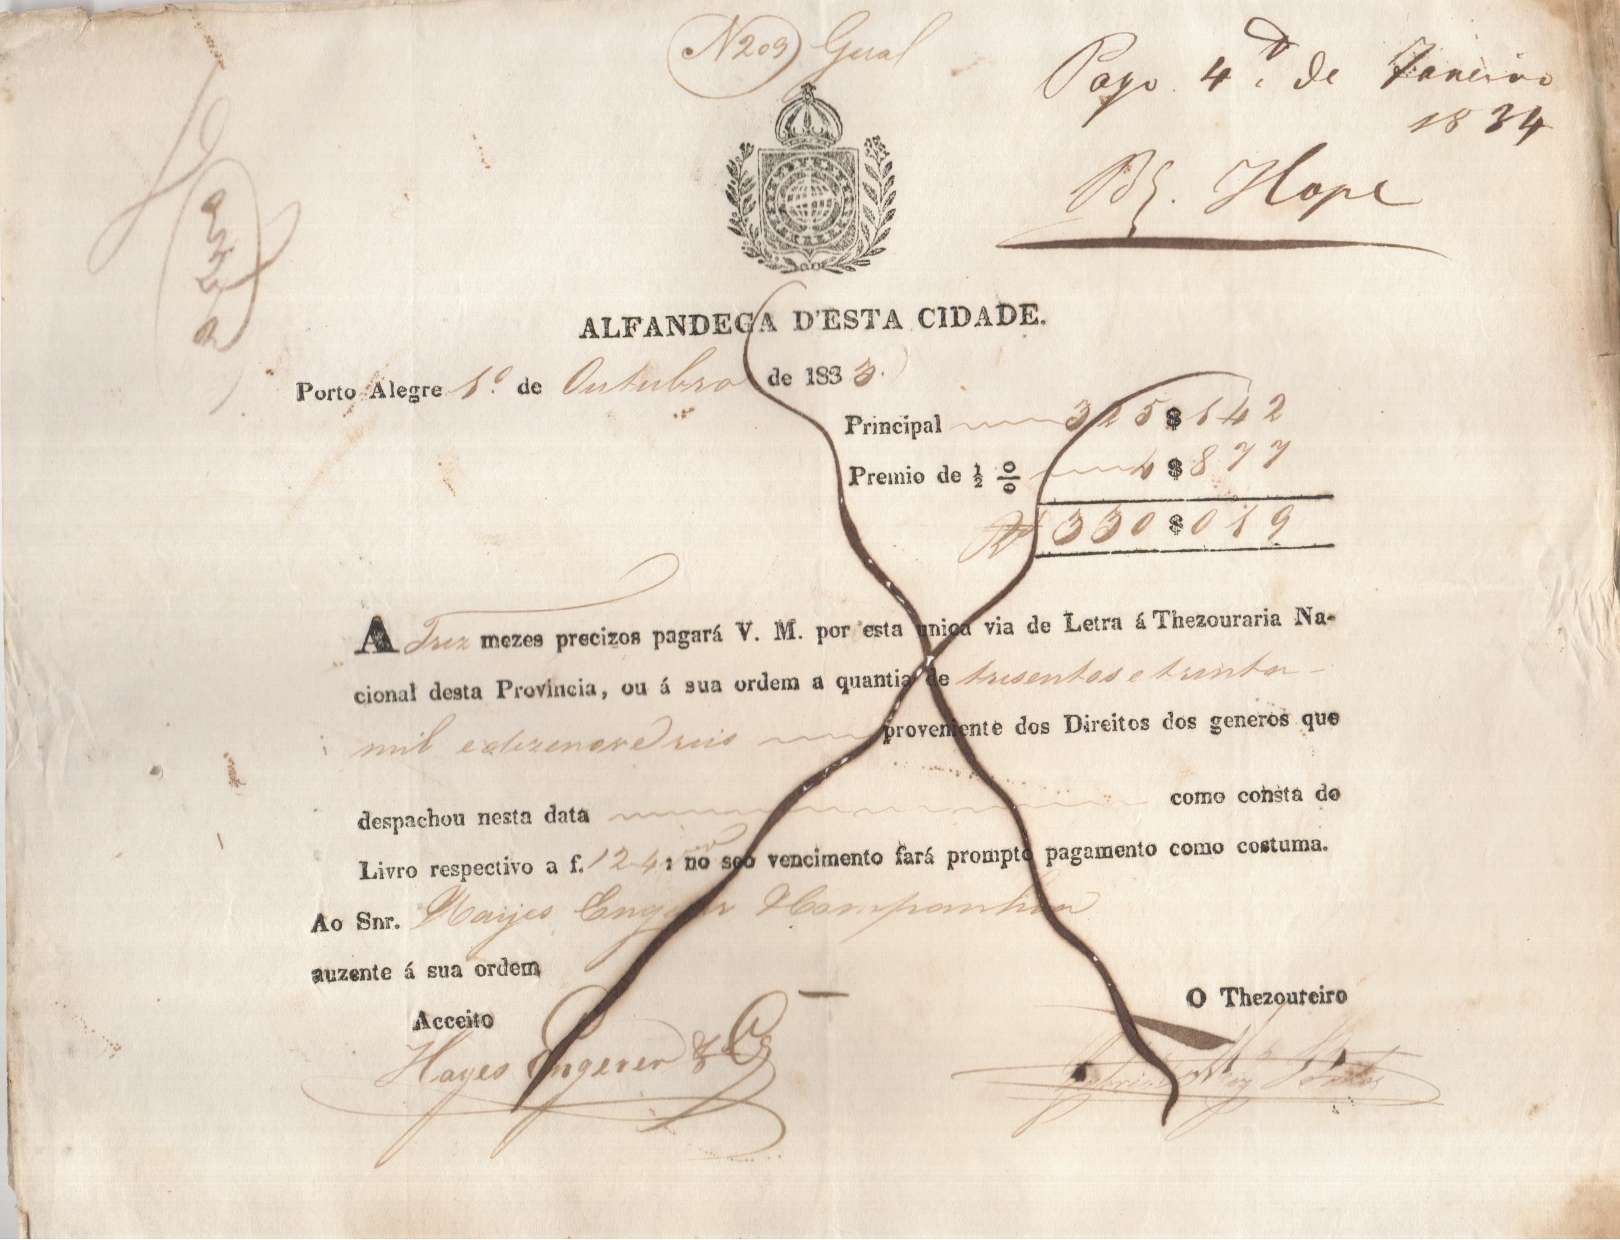 N 209 Geral
Pago 4 de Janeiro
1834
Hope
ALFANDEGA D'ESTA CIDADE.
Porto Alegre 1º de Outubro de 1833.
Principal 325$142
Premio de ½ % 4$877
Rs 330$019
A Trez mezes precizos pagará V. M. por esta unica via de Letra á Thezouraria Na-
cional desta Provincia, ou á sua ordem a quantia de tresentos e trinta
mil e dezenove reis proveniente dos Direitos dos generos que
despachou nesta data como consta do
Livro respectivo a f. 124 : no seo vencimento fará prompto pagamento como costuma.
Ao Snr. Hayes Engerer & Companhia
auzente á sua ordem
Acceito
O Thezoureiro
Hayes Engerer & Cª